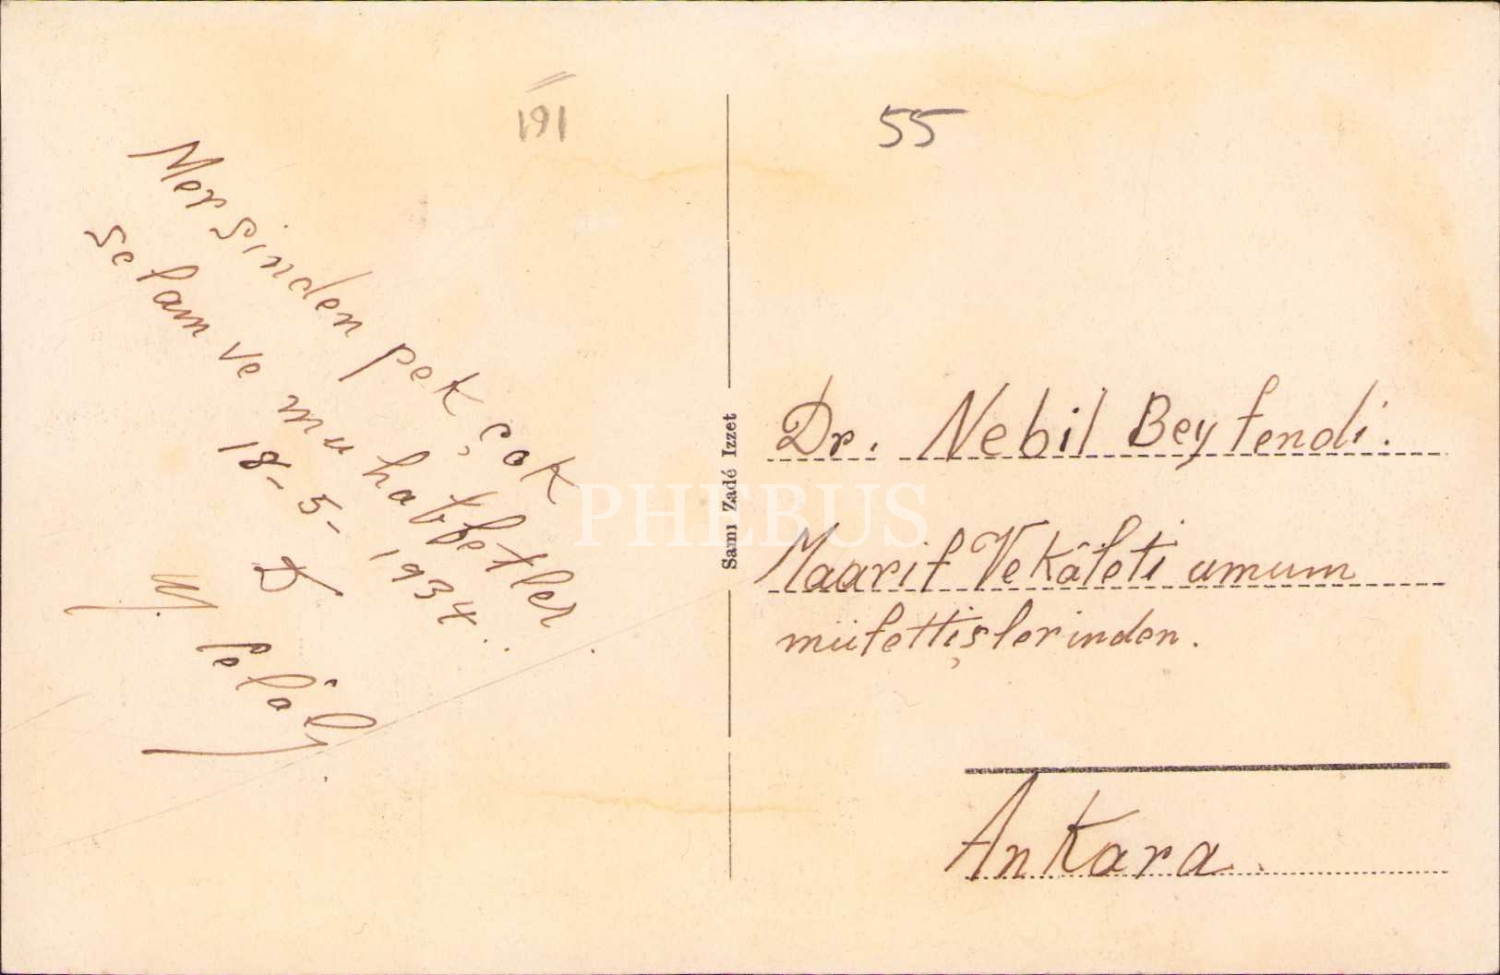 191
Mersinden pek çok
selam ve muhabbetler
18-5-1934.
D
M Celâl
Sami Zadé Izzet
55
Dr. Nebil Beyfendi.
Maarif Vekâleti umum
müfettişlerinden.
Ankara.
PHEBUS